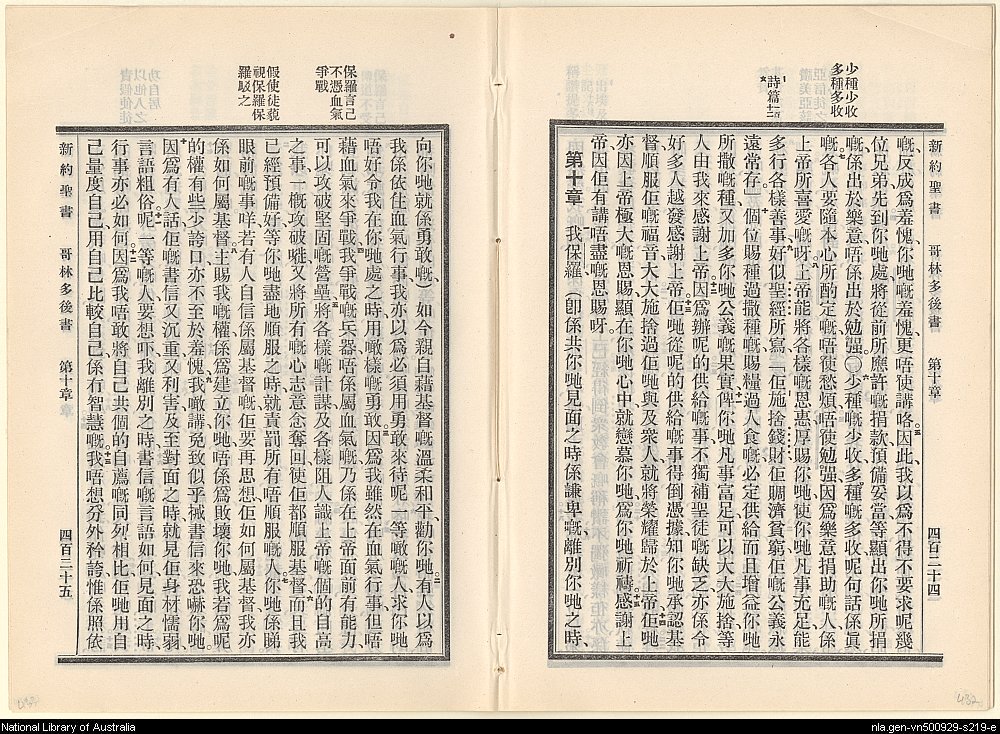 少種少收
多種多收
詩篇一百十二
新約聖書 哥林多後書 第十章 四百二十四
嘅反成爲羞愧你哋嘅羞愧更唔使講咯因此我以爲不得不要求呢幾
位兄弟先到你哋處將從前所應許嘅捐款預備妥當等顯出你哋所捐
嘅係出於樂意唔係出於勉强○少種嘅少收多種嘅多收呢句話係眞
嘅各人要隨本心所酌定嘅唔使愁煩唔使勉强因爲樂意捐助嘅人係
上帝所喜愛嘅呀上帝能將各樣嘅恩惠厚賜你哋使你哋凡事充足能
多行各樣善事好似聖經所寫「佢施捨錢財佢賙濟貧窮佢嘅公義永
遠常存」個位賜種過撒種嘅賜糧過人食嘅必定供給而且增益你哋
所撒嘅種又加多你哋公義嘅果實俾你哋凡事富足可以大大施捨等
人由我來感謝上帝因爲辦呢的供給嘅事不獨補聖徒嘅缺乏亦係令
好多人越發感謝上帝佢哋從呢的供給嘅事得倒憑據知你哋承認基
督順服佢嘅福音大大施捨過佢哋與及衆人就將榮耀歸於上帝佢哋
亦因上帝極大嘅恩賜顯在你哋心中就戀慕你哋爲你哋祈禱感謝上
帝因佢有講唔盡嘅恩賜呀
第十章 我保羅（卽係共你哋見面之時係謙卑嘅離別你哋之時
保羅言己
不憑血氣
爭戰
假使徒藐
視保羅保
羅駁之
向你哋就係勇敢嘅）如今親自藉基督嘅溫柔和平勸你哋有人以爲
我係依住血氣行事我亦以爲必須用勇敢來待呢一等嘅人求你哋
唔好令我在你哋處之時用噉樣嘅勇敢因爲我雖然在血氣行事但唔
藉血氣來爭戰我爭戰嘅兵器唔係屬血氣嘅乃係在上帝面前有能力
可以攻破堅固嘅營壘將各樣嘅計謀及各樣阻人識上帝嘅個的自高
之事一概攻破嘥又將所有嘅心志意念奪回使佢都順服基督而且我
已經預備好等你哋盡地順服之時就責罰所有唔順服嘅人你哋係睇
眼前嘅事咩若有人自信係屬基督嘅佢要再思想佢如何屬基督我亦
係如何屬基督主賜我嘅權係爲建立你哋唔係爲敗壞你哋我若爲呢
的權有些少誇口亦不至於羞愧我噉講免致似乎搣書信來恐嚇你哋
因爲有人話佢嘅書信又沉重又利害及至對面之時就見佢身材懦弱
言語粗俗呢一等嘅人要想吓我離別之時書信嘅言語如何見面之時
行事亦必如何因爲我唔敢將自己共個的自薦嘅同列相比佢哋用自
己量度自己用自己比較自己係有智慧嘅我唔想分外矜誇惟係照依
新約聖書 哥林多後書 第十章 四百二十五
National Library of Australia
nla.gen-vn500929-s219-e